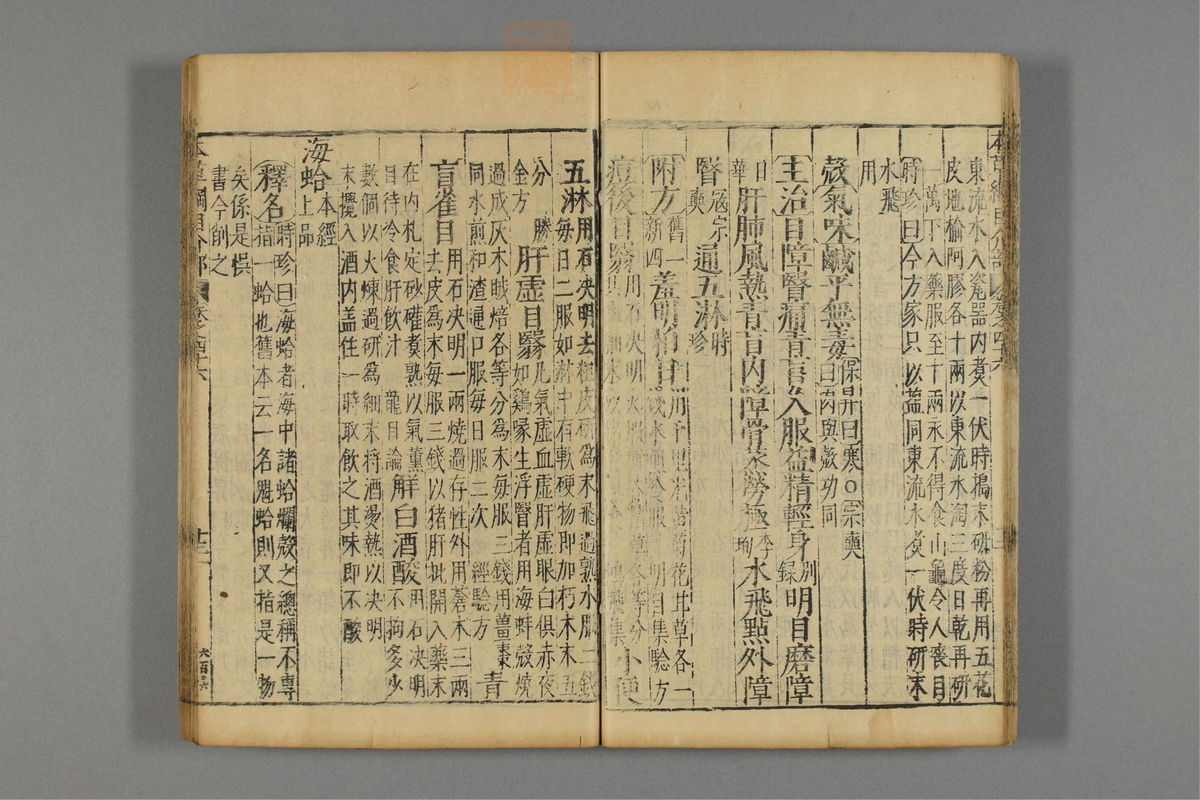 東流水入瓷器内煮一伏時搗末研粉再用五花
皮地榆阿膠各十兩以東流水淘三度日乾再研
一萬下入藥服至十兩永不得食山龜令人喪目
時珍曰今方家只以鹽同東流水煮一伏時研末
水飛
用
殼氣味鹹平無毒保昇曰寒○宗奭
曰肉與殼功同
主治目障瞖痛青盲久服益精輕身別
錄明目磨障
日
華肝肺風熱青盲内障骨蒸勞極李
珣水飛點外障
瞖寇宗
奭通五淋時
珍
附方舊一
新四羞明怕日用千里光黃菊花甘草各一
錢水煎冷服明目集驗方
痘後目翳小便
五淋用石決明去粗皮研為末飛過熟水服二錢
每日二服如淋中有軟硬物即加朽木末五
分 勝
金方肝虛目翳凡氣虛血虛肝虛眼白俱赤夜
如雞啄生浮瞖者用海蚌殼燒
過成灰木賊焙各等分為末每服三錢用薑棗
同水煎和渣通口服每日服二次 經驗方青
盲雀目用石決明一兩燒過存性外用蒼朮三兩
去皮為末每服三錢以猪肝批開入藥末
在内札定砂確煮熟以氣薰
目待冷食肝飲汁 龍目論解白酒酸用石決明
不拘多少
數個以火煉過研為細末将酒燙熱以決明
末攪入酒内盖住一時取飲之其味即不酸
海蛤本經
上品
釋名時珍曰海蛤者海中諸蛤爛殼之總稱不專
指一蛤也舊本云一名魁蛤則又指是一物
矣係是悞
書今削之
本草綱目介部 卷之四十六
十二
六百六